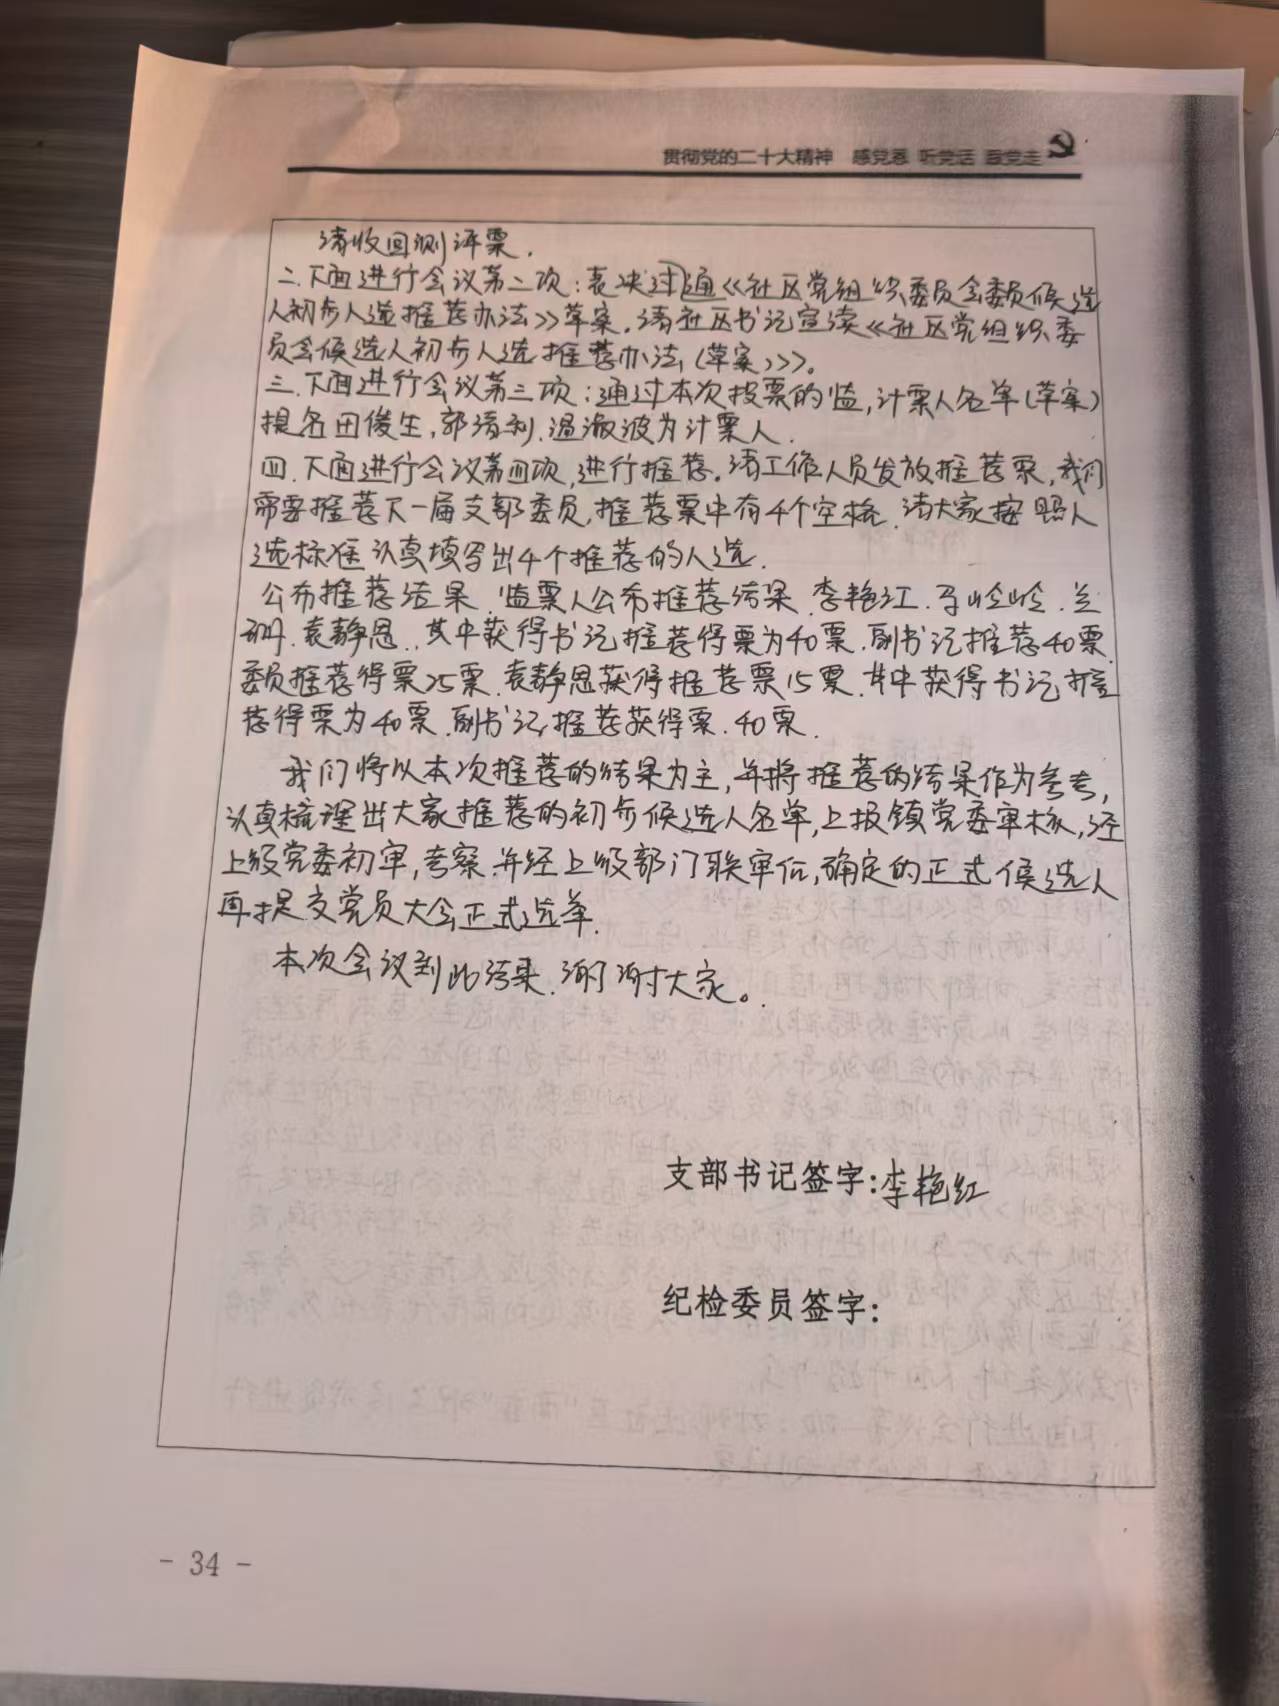 贯彻党的二十大精神 感党恩 听党话 跟党走
请收回测评票.
二.下面进行会议第二项:表决过通《社区党组织委员会委员候选
人初步人选推荐办法》草案.请社区书记宣读《社区党组织委
员会候选人初步人选推荐办法(草案)》。
三.下面进行会议第三项:通过本次投票的监,计票人名单(草案)
提名田俊生,郭清利.温淑波为计票人.
四.下面进行会议第四项,进行推荐。请工作人员发放推荐票,我们
需要推荐下一届支部委员,推荐票中有4个空格.请大家按照人
选标准认真填写出4个推荐的人选.
公布推荐结果.监票人公布推荐结果.李艳江.马岭岭.兰
.袁静思..其中获得书记推荐得票为40票.副书记推荐40票.
委员推荐得票25票.袁静思获得推荐票15票.其中获得书记推
荐得票为40票.副书记推荐获得票.40票.
我们将以本次推荐的结果为主,并将推荐的结果作为参考,
认真梳理出大家推荐的初步候选人名单,上报镇党委审核,经
上级党委初审,考察.并经上级部门联审后,确定的正式候选人
再提交党员大会正式选举.
本次会议到此结束.谢谢大家。.
支部书记签字:李艳红
纪检委员签字:
- 34 -